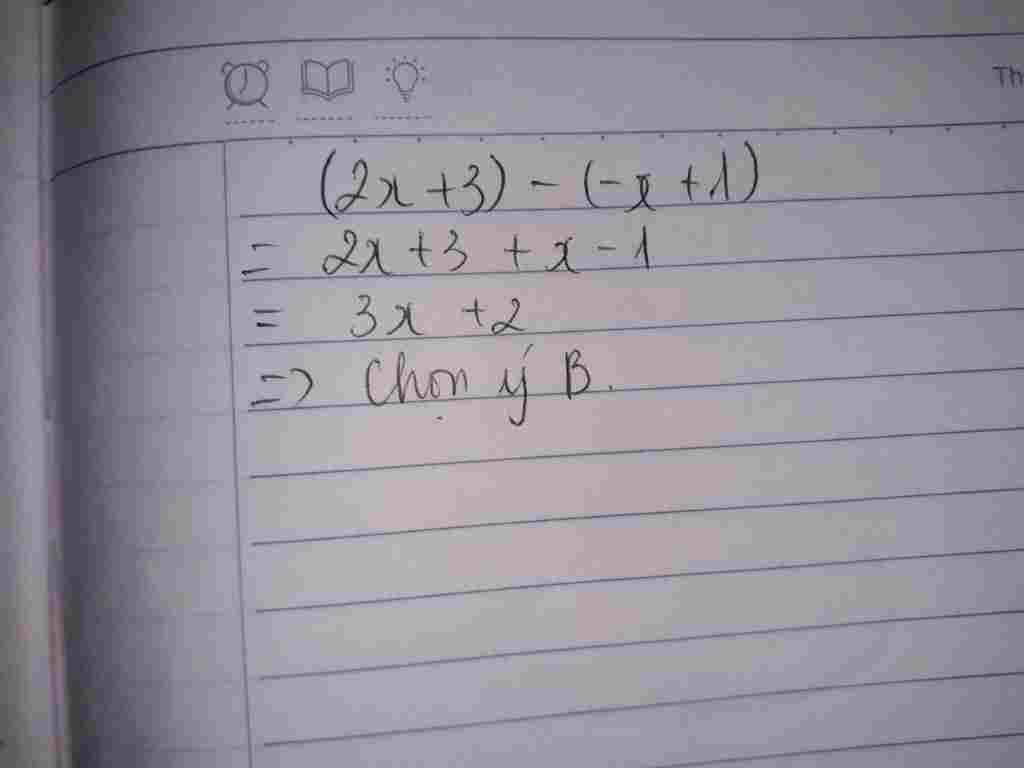 Th
(2x + 3) - (-x + 1)
= 2x + 3 + x - 1
= 3x + 2
=> Chọn ý B.